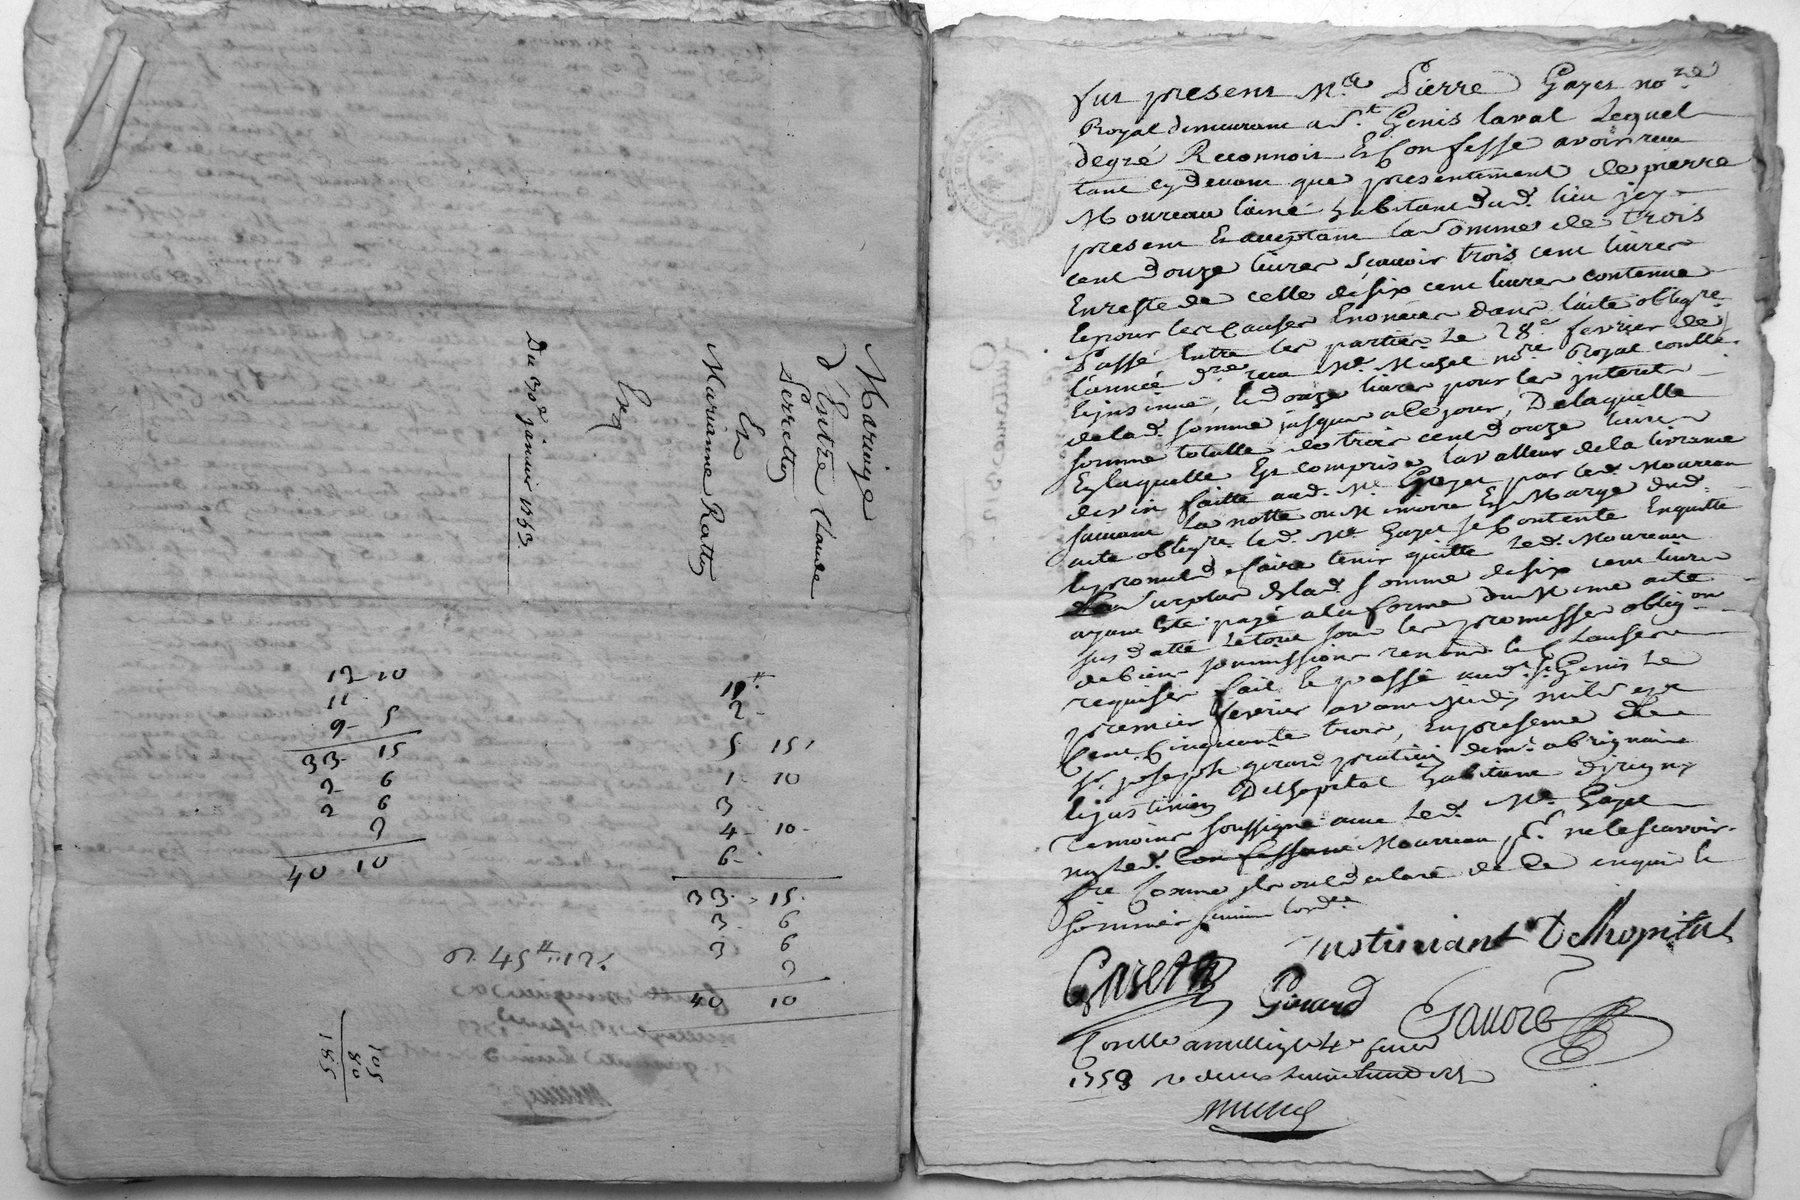 Mariage
d'Entre Claude
Perretton
Et
Marianne Ratton
Exq
Du 30e janvier 1753
12 10
11
9 5
33 15
2 6
2 6
2
40 10
11#
2
5 15
1 10
3
4 10
6
33 15
3 6
3 6
2
40 10
45# 12s
105
80
185
fut present Me Pierre Gayet nore
Royal demeurant a St Genis laval Lequel
degré Reconnoit Et Confesse avoir reçu
tant cydevant que presentement de pierre
Moureau lainé habitant dud. lieu icy
present Et acceptant la Somme de trois
cent douze livres Scavoir trois cent livres
En reste de celle de six cent livres contenue
Et pour les Causes Enoncées dans l'acte obligre
Passé Entre les parties Le 28e fevrier de
l'année dre reçu Me nore Royal Conllé
Et insinué, Et douze livres pour les interets
de lad. somme jusques a ce jour, De laquelle
somme totalle de trois cent douze livres
En laquelle Est comprise la valleur de la livraison
de vin faitte aud. Me Gayet par led. Moureau
suivant la notte ou Memoire En Marge dud.
acte obligre led. Me Gayet se Contente Enquitte
Et promet faire tenir quitte Led. Moureau
Surplus de lad. Somme de six cent livres
ayant Eté payé a la forme du Meme acte
sus datté Le tout sous les promesses obligon
de biens soumissions renonc. Et Clauses
requises fait Et passé aud. St Genis Le
premier fevrier avant midy mil sept
Cent Cinquante trois, En presence de
Sr joseph girard praticien demt a brignais
Et justinien Delhopital habitant dirigny
Temoins soussignés avec Led. Me Gayet
non Led. Moureau pr ne le scavoir
fre Comme il a declaré de ce enquis Et
sommé suivant lordce
Justiniant Delhopital
Gayet
Girard
Gavoré
Conllé a millery le 4e fevrier
1753 reçu